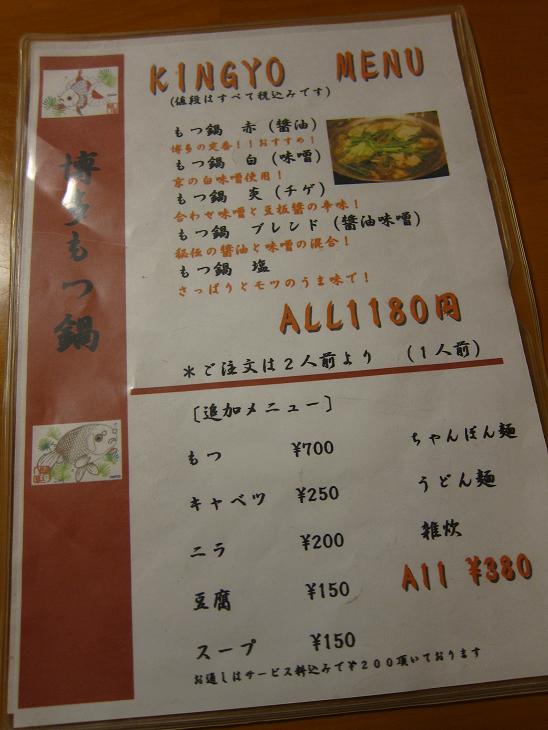 KINGYO MENU
(値段はすべて税込みです)
博多もつ鍋
もつ鍋 赤 (醬油)
博多の定番!!おすすめ!
もつ鍋 白 (味噌)
京の白味噌使用!
もつ鍋 炎 (チゲ)
合わせ味噌と豆板醬の辛味!
もつ鍋 ブレンド (醬油味噌)
秘伝の醬油と味噌の混合!
もつ鍋 塩
さっぱりとモツのうま味で!
ALL1180円
*ご注文は2人前より (1人前)
[追加メニュー]
もつ ¥700
キャベツ ¥250
ニラ ¥200
豆腐 ¥150
スープ ¥150
ちゃんぽん麺
うどん麺
雑炊
All ¥380
お通しはサービス料込みで¥200頂いております